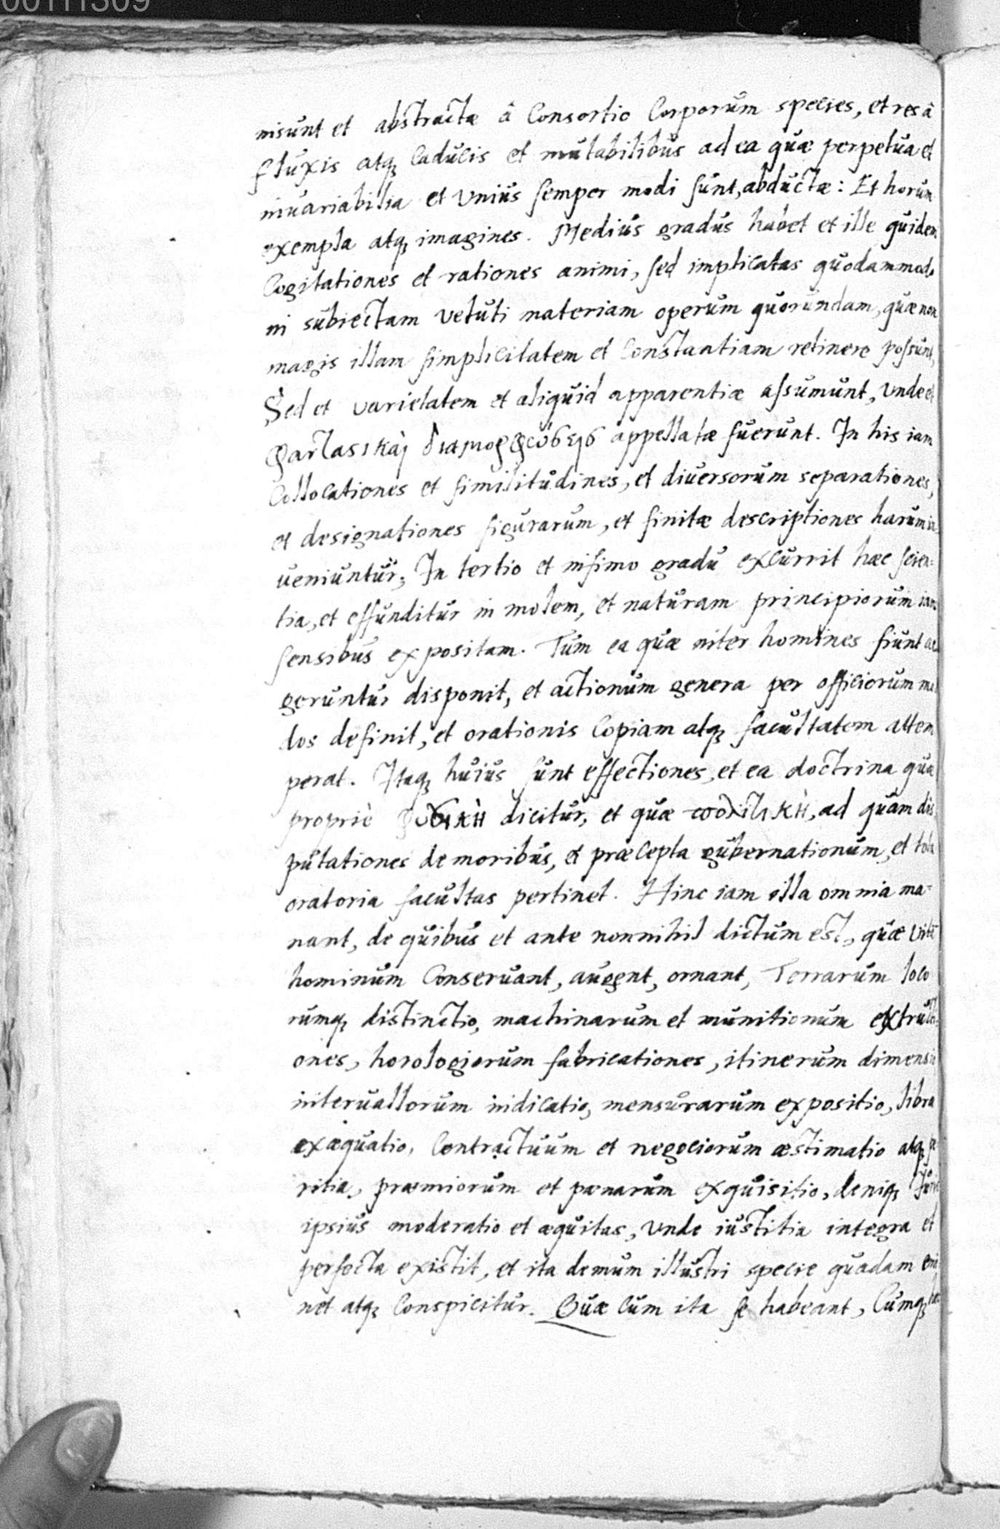 00111309
insunt et abstractæ â Consortio Corporum species, et res â
fluxis atq, Caducis et mutabilibus ad ea quæ perpetua et
invariabilia et Unius semper modi sunt, abductæ: Et horum
exempla atq, imagines. Medius gradus habet et ille quidem
Cogitationes et rationes animi, sed implicatas quodammodo
in subiectam veluti materiam operum quorundam, quæ non
magis illam simplicitatem et Constantiam retinere possunt,
Sed et varietatem et aliquid apparentiæ assumunt, Unde et
φανταστικαὶ διαμορφώσεις appellatæ fuerunt. In his iam
Collocationes et similitudines, et diversorum separationes,
et designationes figurarum, et finitæ descriptiones harum in
veniuntur, In tertio et infimo gradu excurrit hæc scien-
tia, et effunditur in molem, et naturam principiorum iam
sensibus expositam. Tum ea quæ inter homines fiunt ac
geruntur disponit, et actionum genera per officiorum mo
dos definit, et orationis Copiam atq, facultatem attem
perat. Itaq, huius sunt effectiones, et ea doctrina quæ
propriè φυσικὴ dicitur, et quæ πολιτικὴ, ad quam dis
putationes de moribus, et præcepta gubernationum, et tota
oratoria facultas pertinet. Hinc iam illa omnia ma-
nant, de quibus et ante nonnihil dictum est, quæ vitā
hominum Conservant, augent, ornant, Terrarum loco
rumq, distinctio, machinarum et munitionum extructi
ones, horologiorum fabricationes, itinerum dimensio
intervallorum indicatio, mensurarum expositio, libræ
exæquatio, Contractuum et negociorum æstimatio atq,
ritia, præmiorum et pœnarum exquisitio, deniq, Juris
ipsius moderatio et æquitas, Unde iustitia integra et
perfecta existit, et ita demum illustri specie quadam emi
net atq, Conspicitur. Quæ Cum ita se habeant, Cumq,